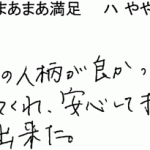 まあまあ満足 ハ やや
の人柄が良かっ
てくれ、安心して
出来た。